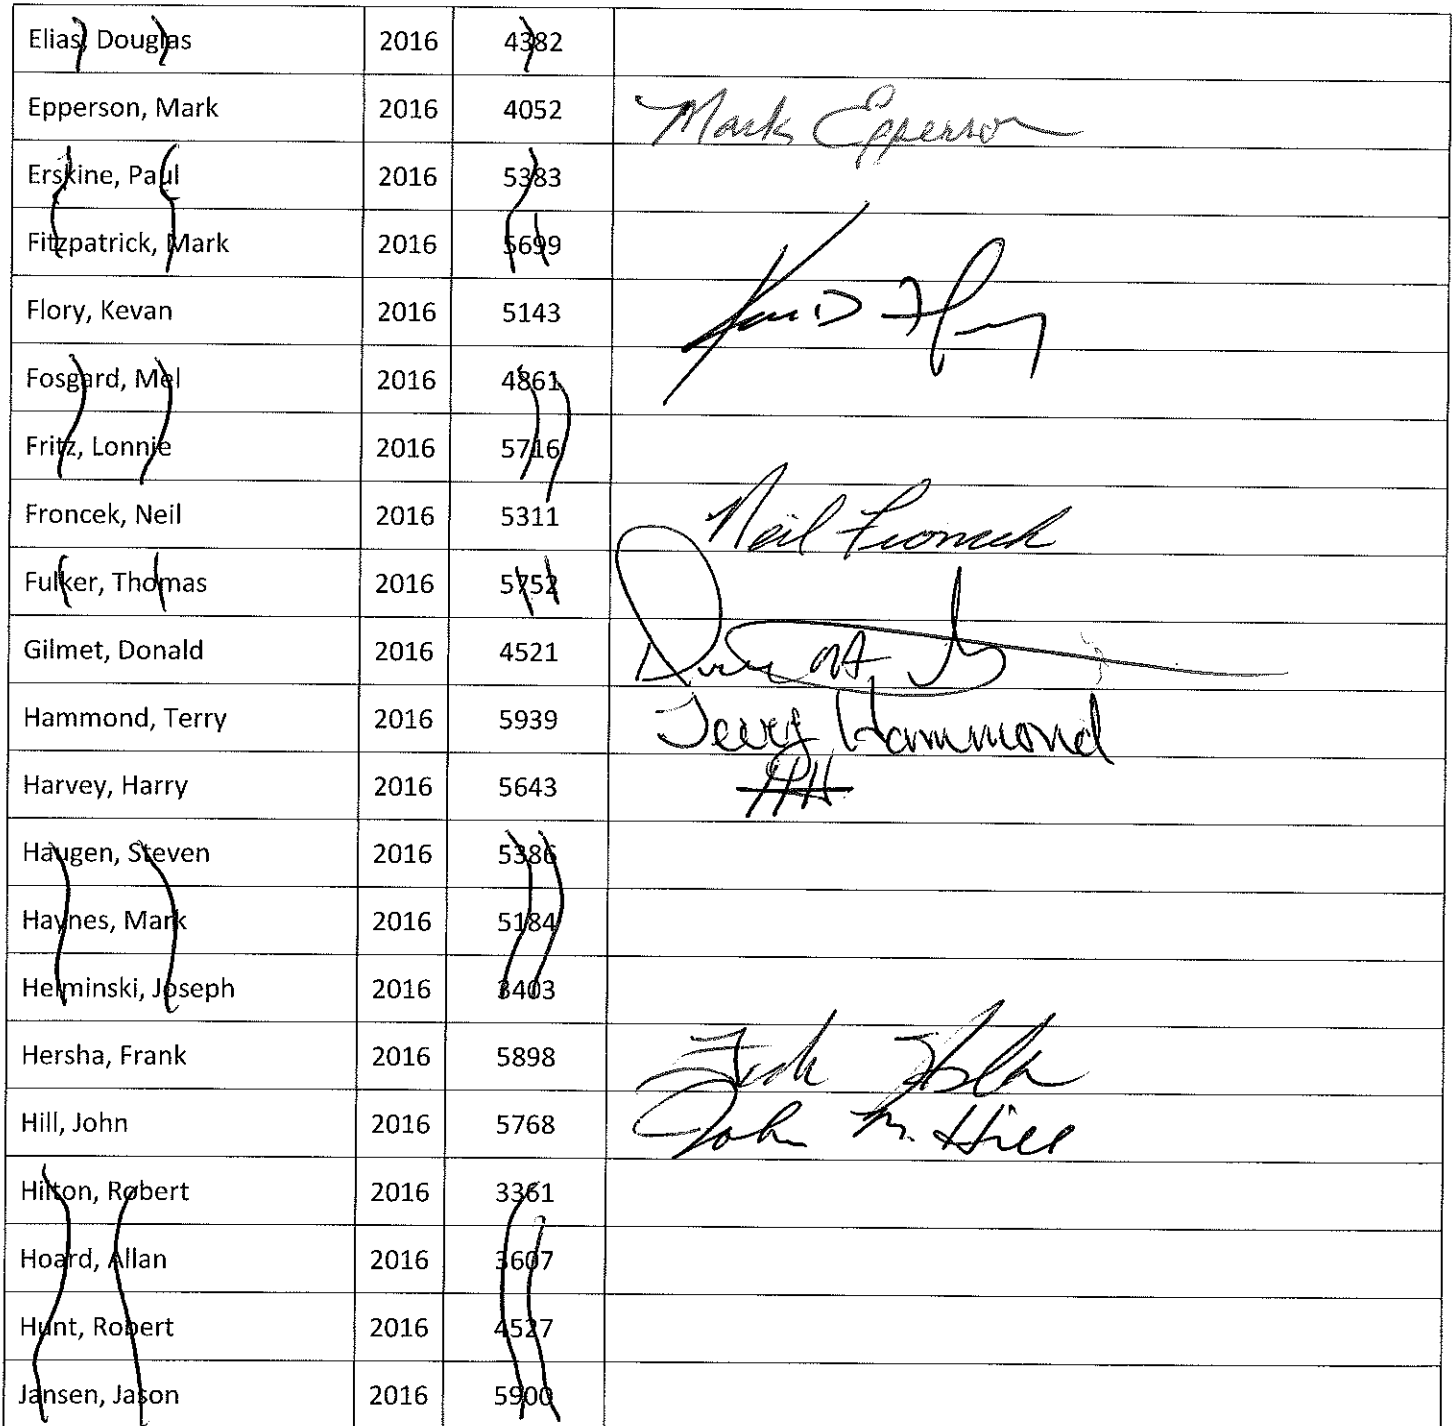 Elias, Douglas 2016 4382
Epperson, Mark 2016 4052 Mark Epperson
Erskine, Paul 2016 5383
Fitzpatrick, Mark 2016 5699
Flory, Kevan 2016 5143
Fosgard, Mel 2016 4861
Fritz, Lonnie 2016 5716
Froncek, Neil 2016 5311 Neil Froncek
Fulker, Thomas 2016 5752
Gilmet, Donald 2016 4521
Hammond, Terry 2016 5939 Terry Hammond
Harvey, Harry 2016 5643 HH
Haugen, Steven 2016 5386
Haynes, Mark 2016 5184
Helminski, Joseph 2016 3403
Hersha, Frank 2016 5898
Hill, John 2016 5768 John M. Hill
Hilton, Robert 2016 3361
Hoard, Allan 2016 3607
Hunt, Robert 2016 4527
Jansen, Jason 2016 5900